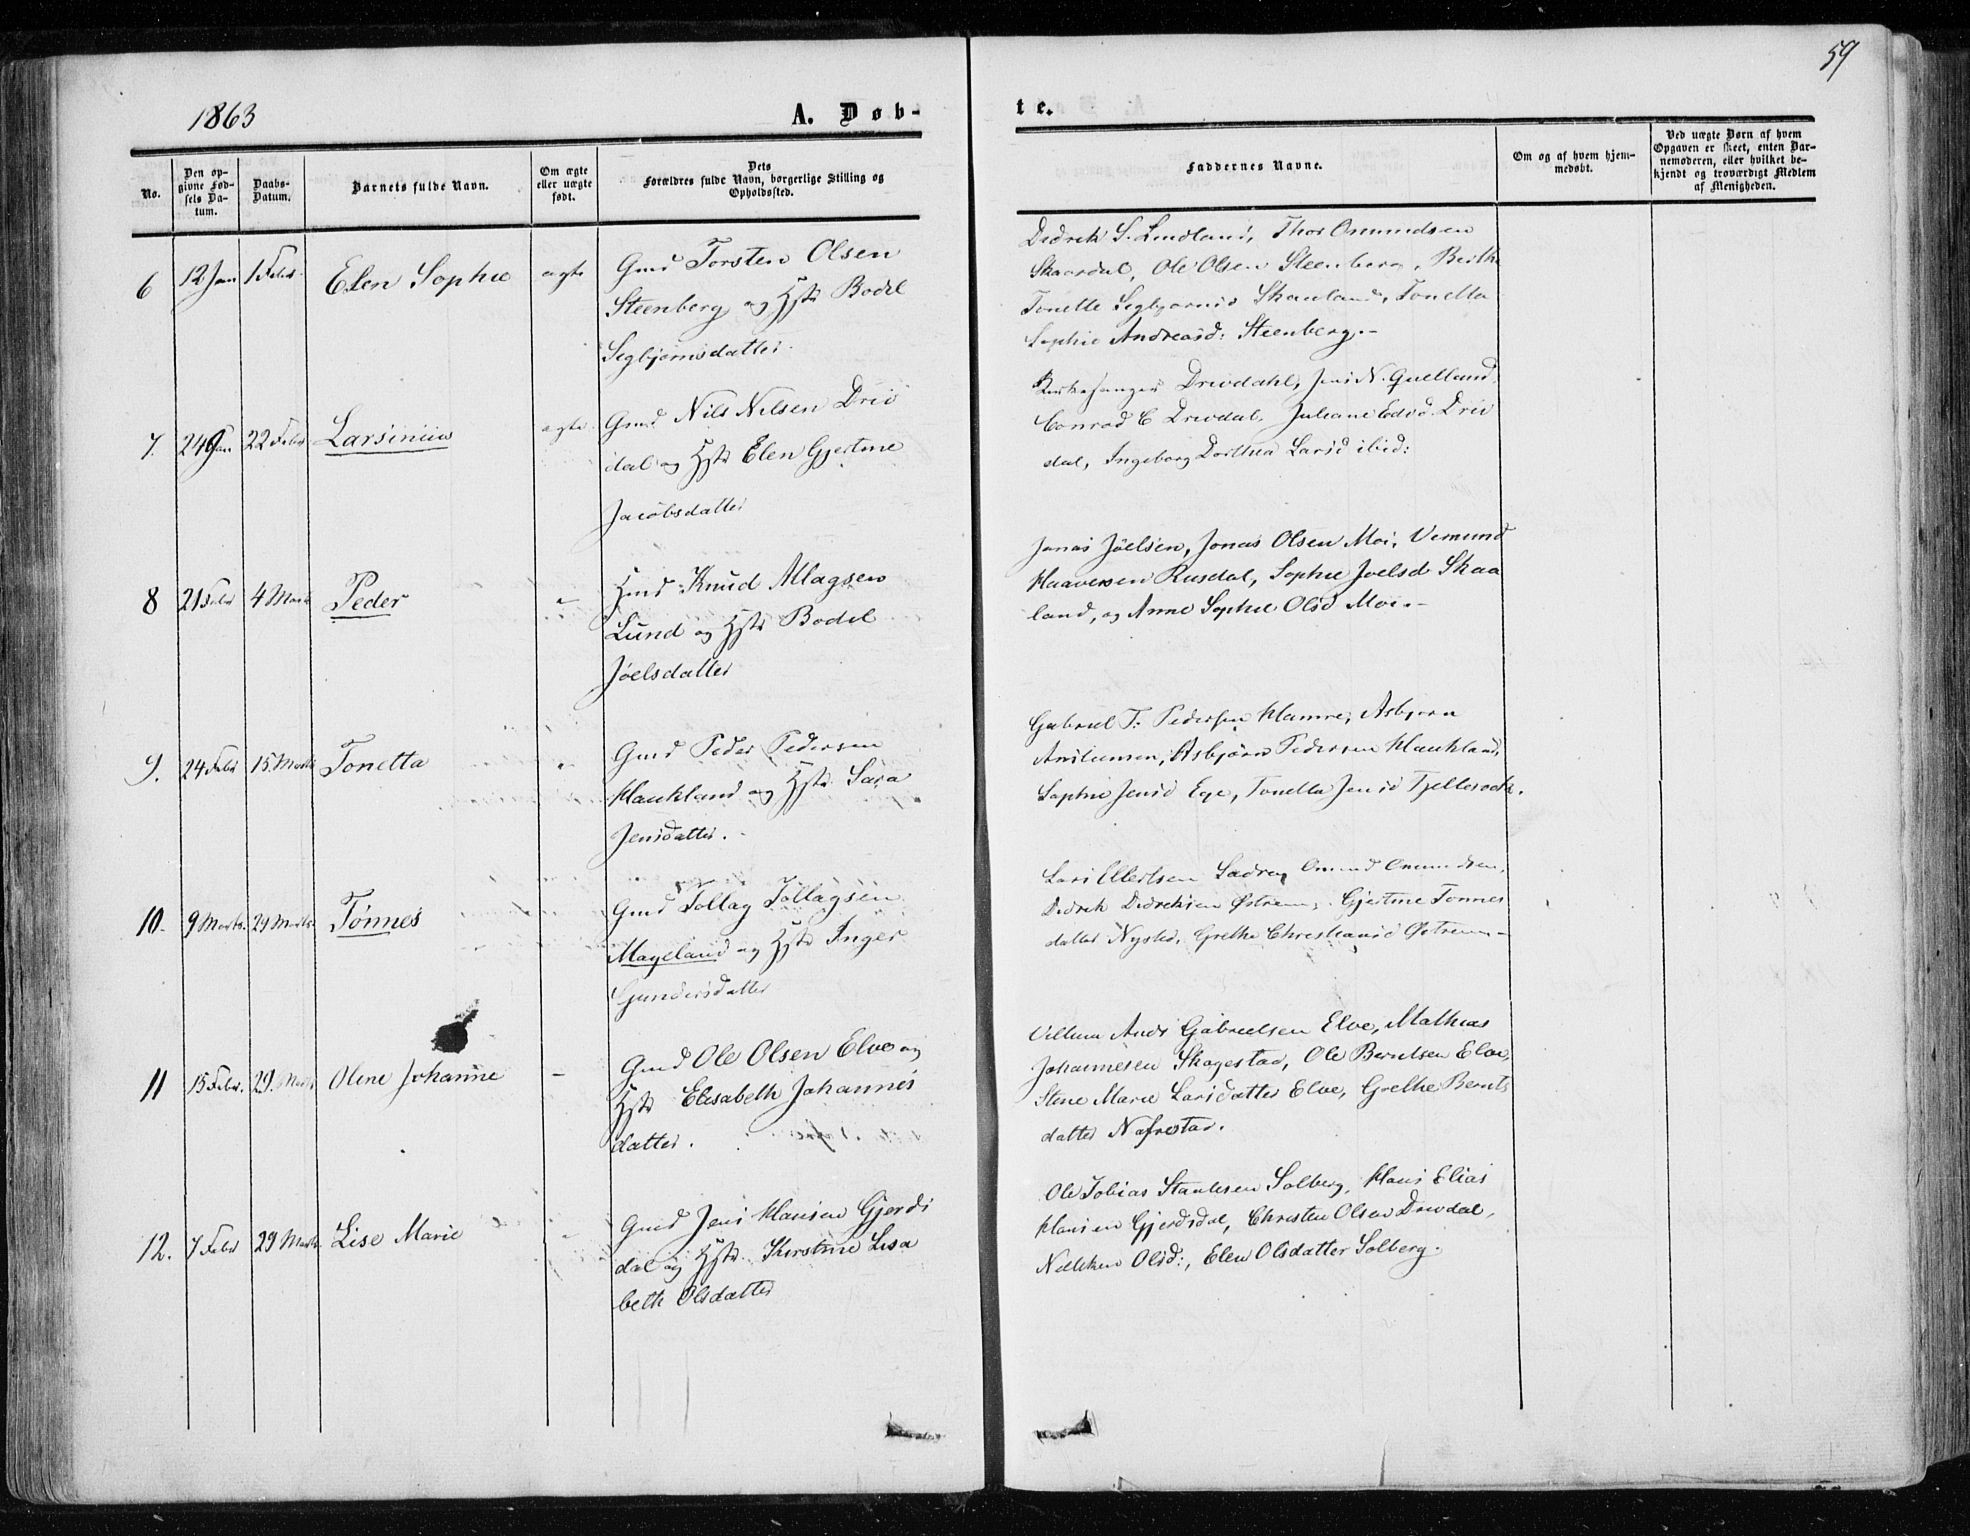 59
1863
A. Døb-
te.
No.
Den op-
givne Fød-
sels Da-
tum.
Daabs-
Datum.
Barnets fulde Navn.
Om ægte
eller uægte
født.
Dets
Forældres fulde Navn, borgerlige Stilling og
Opholdssted.
Faddernes Navne.
Om og af hvem hjem-
medøbt.
Ved uægte Børn af hvem
Opgaven er skeet, enten Bar-
nemoderen, eller hvilket be-
kjendt og troværdigt Medlem
af Menigheden.
6 12 Jan 1 Febr. Elen Sophie ægte Gmd Torsten Olsen
Steenberg og Hstr Bodel
Segbjørnsdatter.
Didrek S. Lindland, Thor Omundsen
Skaardal, Ole Olsen Steenberg, Berthe
Tonette Segbjørnsd Skauland, Tonetta
Sophie Andreasd: Steenberg.-
7. 24 Jan 22 Febr Larsinius ægte. Gmd Nils Nilsen Driv
dal og Hstr Elen Gjertine
Jacobsdatter
Kirkesanger Drivdahl, Jens N.
Conrad C Drivdal, Juliane Edvd. Driv
dal, Ingeborg Dorthea Larsd ibid:
8 21 Febr 4 Marts Peder - Hmd Knud Allagsen
Lund og Hstr Bodel
Joelsdatter
Jonas Joelsen, Jonas Olsen Moi, Vemund
Haaversen Rusdal, Sophie Joelsd Skaa
land, og Anne Sophie Olsd Moi.-
9. 24 Febr 15 Marts Tonetta - Gmd Peder Pedersen
Haukland og Hstr Sara
Jensdatter.
Gabriel T: Pedersen Hamre, Asbjørn
Asbjørn Pedersen Haukland,
Sophie Jensd Ege, Tonetta Jensd
10. 9 Marts. 29 Marts. Tønnes Gmd Tollag Tollagsen
Mageland og Hstr Inger
Gundersdatter
Lars Ellertsen Omund Omundsen,
Didrek Didreksen Østrem, Gjertine Tønnes
datter Nysted, Grethe Christiansd Østrem-
11 15 Febr. 29. Marts Oline Johanne - Gmd Ole Olsen Elve og
Hstr Elisabeth Johannes
datter.
Villum Andr Gabrielsen Elve, Mathias
Johannesen Skogestad, Ole Berntsen Elve,
Stine Marie Larsdatter Elve, Grethe Bernts
datter Nafrestad.
12. 7 Febr 29 Marts Lise Marie - Gmd Jens Hansen Gjerds
dal og Hstr. Kirstine Lisa
beth Olsdatter
Ole Tobias Salberg, Hans Elias
Hansen Gjerdsdal, Christen Olsen Drivdal,
Olsd:, Elen Olsdatter Solberg.